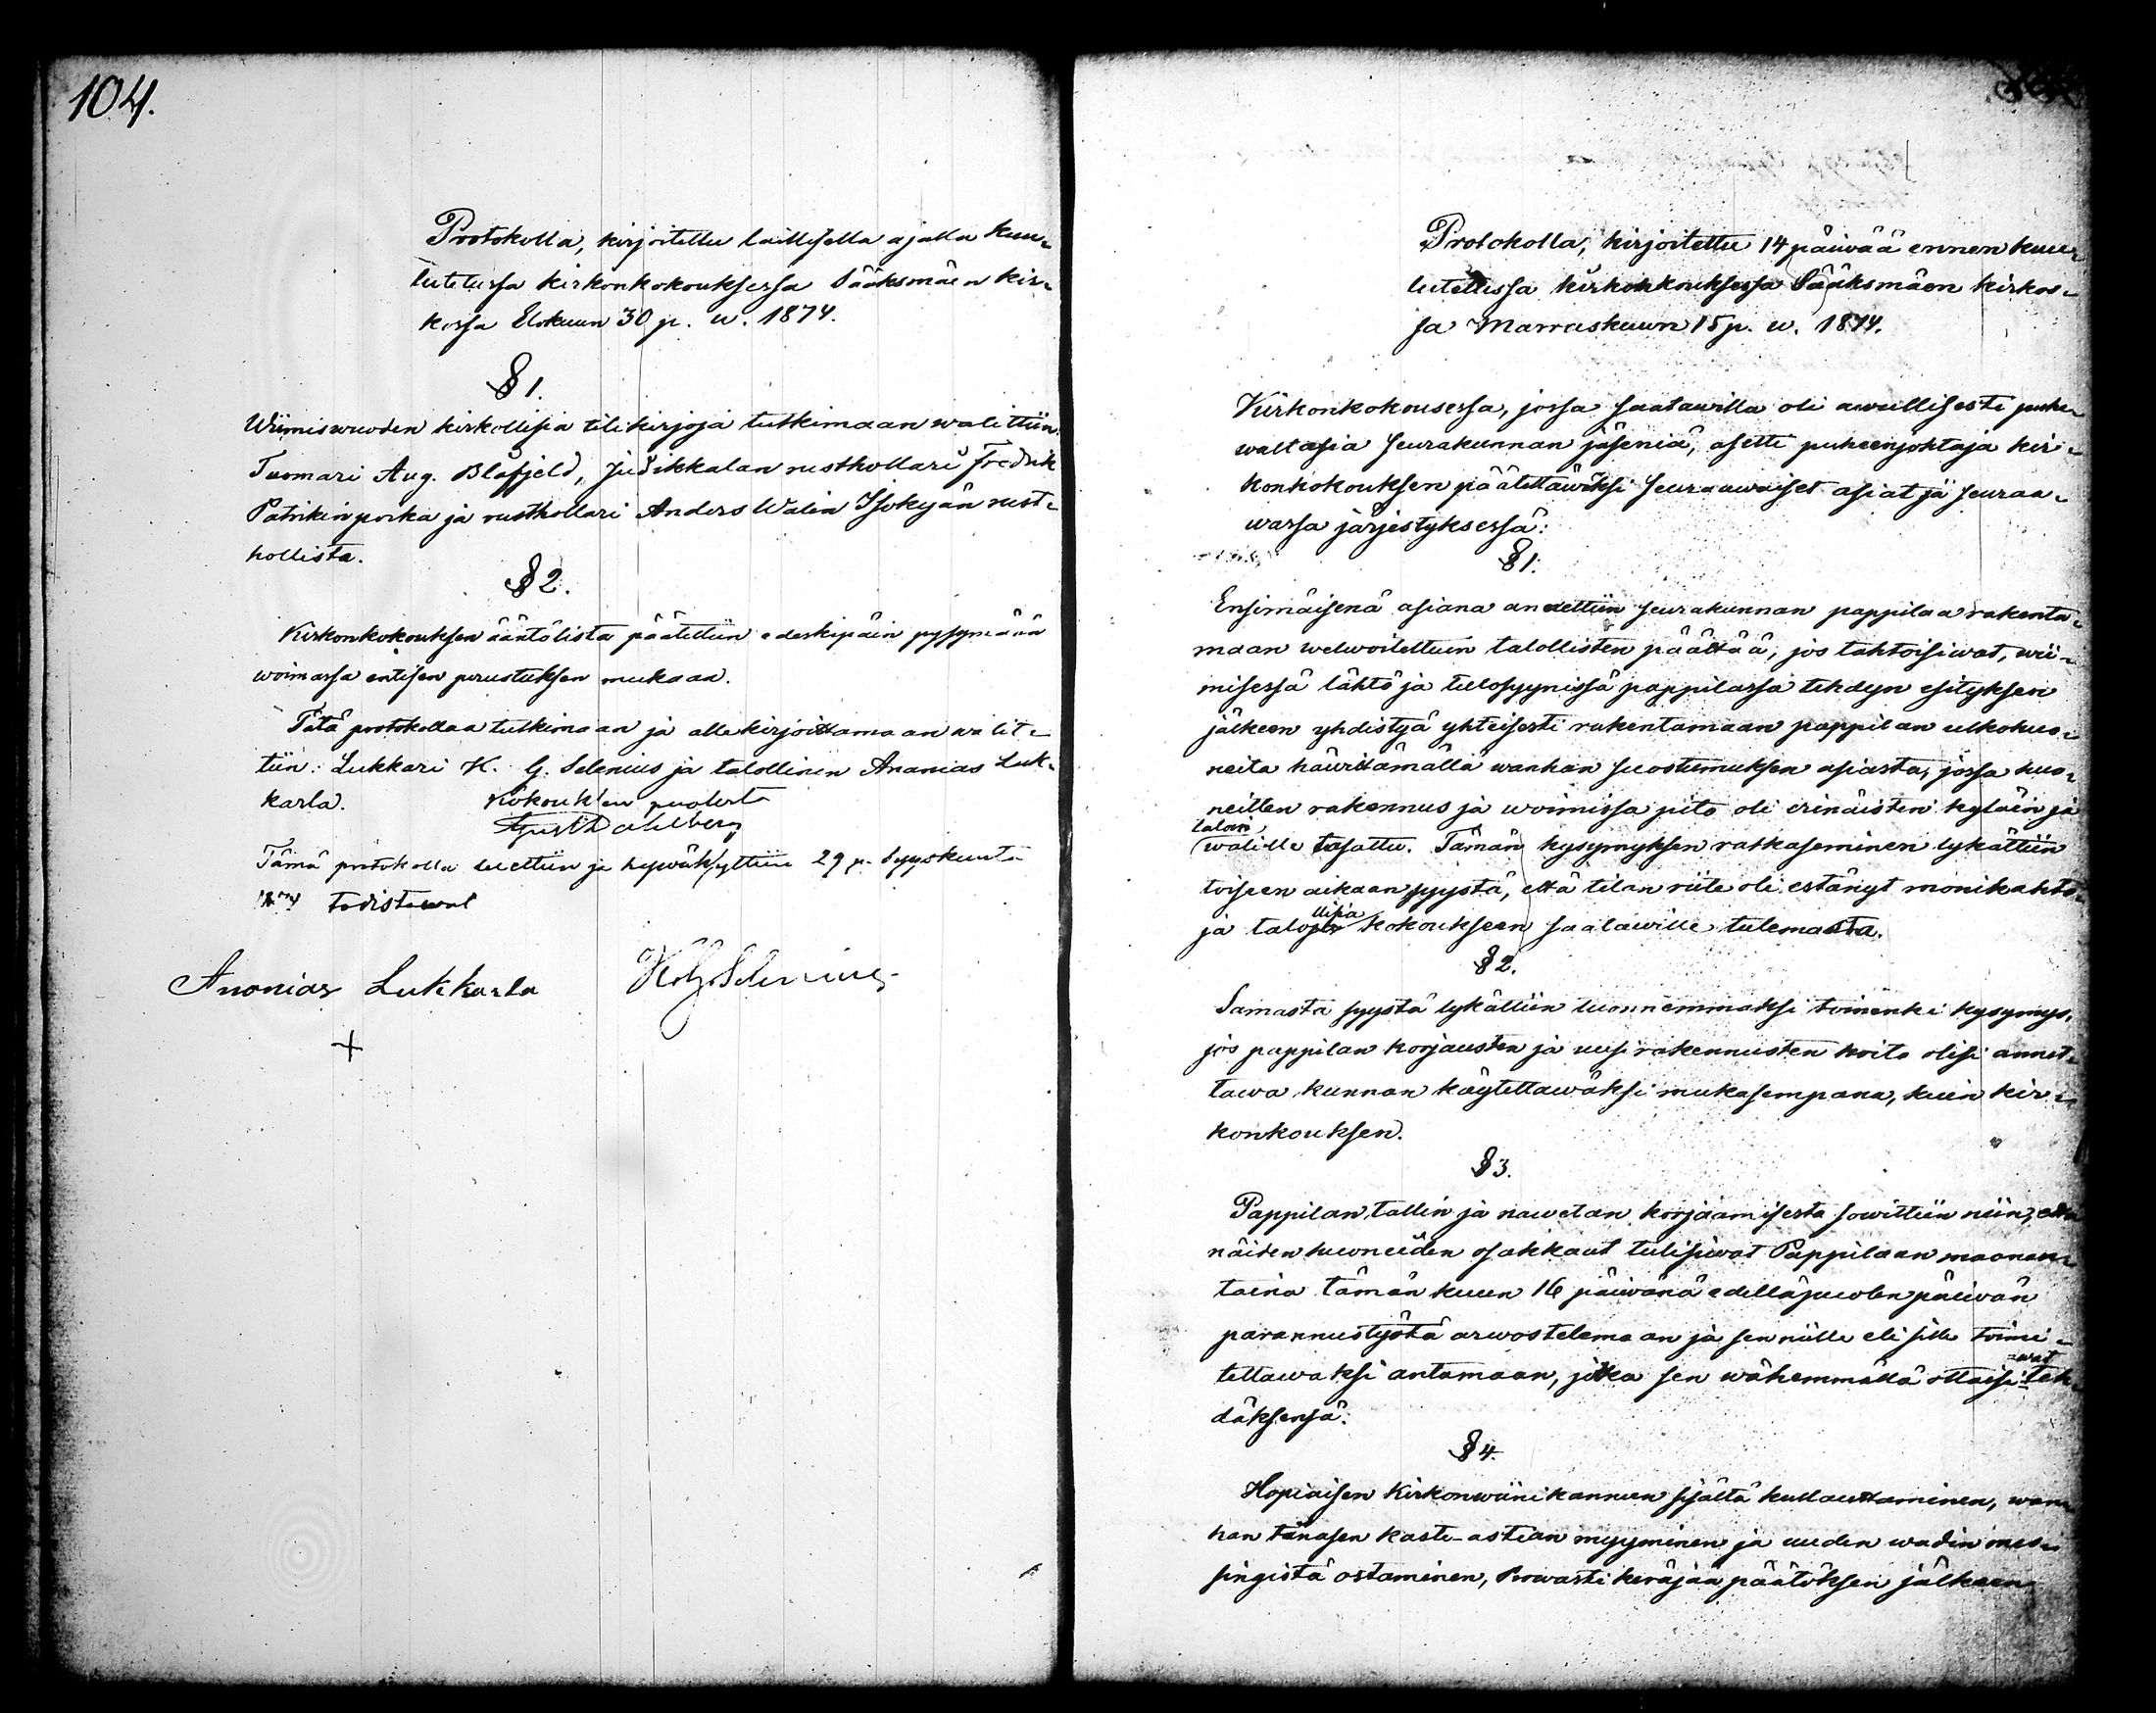 104.
Protokolla, kirjoitettu laillisella ajalla kuu-
lutetussa kirkonkokouksessa Sääksmäen kir-
kossa Elokuun 30 p. w. 1874.
§ 1.
Wiimiswuoden kirkollisia tilikirjoja tutkimaan walittiin:
Tuomari Aug. Blåfjeld, Judikkalan rusthollari Fredrik
Patrikinpoika ja rusthollari Anders Walin Isokylän rust-
hollista.
§ 2.
Kirkonkokouksen ääntölista päätettiin edeskipäin pysymään
woimassa entisen perustuksen mukaan.
Tätä protokollaa tutkimaan ja allekirjoittamaan walit-
tiin: Lukkari K. G. Selenius ja talollinen Ananias Luk-
karla.
Kokouksen puolesta
Gust Dahlberg
Tämä protokolla luettiin ja hywäksyttiin 29 p. Syyskuuta
1874 todistawat
Ananias Lukkarla
K. G. Selenius
+
Protokolla, kirjoitettu 14 päiwää ennen kuu-
lutetussa kirkonkouksessa Sääksmäen kirkos-
sa Marraskuun 15 p. w. 1874.
Kirkonkokousessa, jossa saatawilla oli awullisesti puhe-
waltasia seurakunnan jäseniä, asetti puheenjohtaja kir-
konkokouksen päätettäwiksi seuraawaiset asiat ja seuraa-
wassa järjestyksessä:
§ 1.
Ensimäisenä asiana annettiin seurakunnan pappilaa rakenta-
maan welwoitettuin talollisten päättää, jos tahtoisiwat, wii-
misessä lähtö ja tulosyynissä pappilassa tehdyn esityksen
jälkeen yhdistyä yhteisesti rakentamaan pappilan ulkohuo-
neita häwittämällä wanhan suostumuksen asiasta, jossa huo-
neitten rakennus ja woimissa pito oli erinäisten kyläin ja
taloin
walille tasattu. Tämän kysymyksen ratkaseminen lykättiin
toiseen aikaan syystä, että tilan riite oli estänyt monikahto-
llisia
ja talo kokoukseen saatawille tulemasta.
§ 2.
Samasta syystä lykättiin tuonnemmaksi toinenki kysymys,
jos pappilan korjausten ja uusi rakennusten hoito olisi annet-
tawa kunnan käytettawäksi mukasempana, kuin kir-
konkouksen.
§ 3.
Pappilan tallin ja nawetan korjaamisesta sowittiin niin, että
näiden huoneiden osakkaat tulisiwat Pappilaan maanan-
taina tämän kuun 16 päiwänä edelläpuolen päiwän
parannustyötä arwostelemaan ja sen niille eli sille toimi-
=wat
tettawaksi antamaan, jotka sen wähemmällä ottaisi teh-
däksensä.
§ 4.
Hopiaisen Kirkonwiinikannun sisältä kullauttaminen, wan-
han tinasen kaste-astian myyminen ja uuden wadin mes-
singistä ostaminen, Rowasti keräjän päätöksen jälkeen